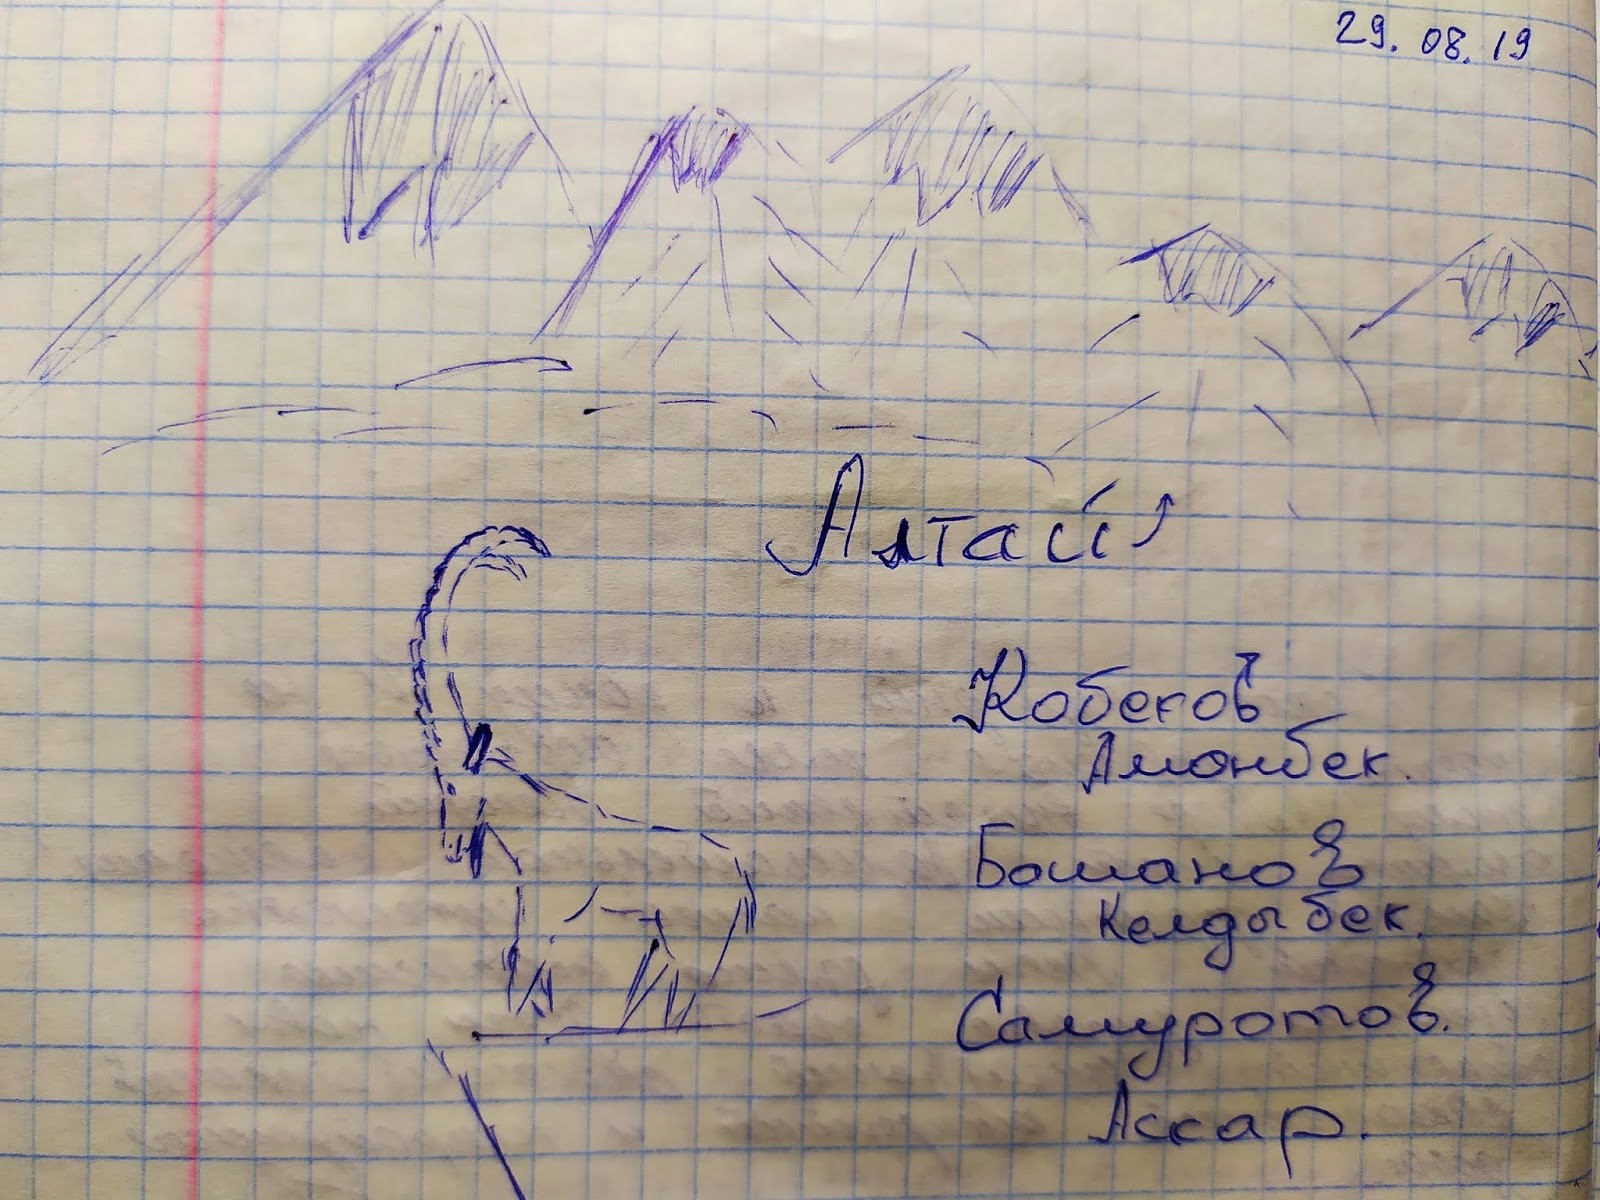 29.08.19
Алтай
Кобеков
Амонбек.
Бошанов
Келдыбек.
Самуротов.
Аскар.